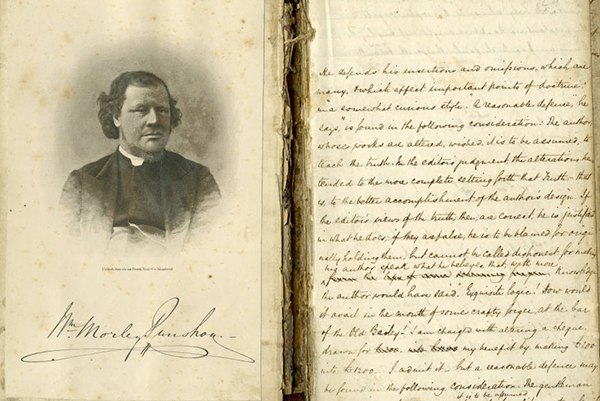 British American Bank Note Co. Montreal
Wm Morley Punshon.—
He defends his insertions and omissions, which are
many, & which affect important points of doctrine,
in a somewhat curious style. A reasonable defence," he
says, "is found in the following consideration: The author,
whose works are altered, wished, it is to be assumed, to
teach the truth. In the editor's judgment, the alterations have
tended to the more complete setting forth that Truth,- that
is, to the better accomplishment of the author's design. If
the editor's views of the truth, then, are correct, he is justified
in what he does; if they are false, he is to be blamed for origi
nally holding them, but cannot be called dishonest for making
his author speak what he believes that, with more
knowledge
the author would have said." Exquisite logic! How would
it avail in the mouth of some crafty forger, at the bar
of the Old Bailey? "I am charged with altering a cheque,
drawn for my benefit by making £200
into £1200. I admit it, but a reasonable defence may
be found in the following consideration. The gentleman
it is to be assumed,